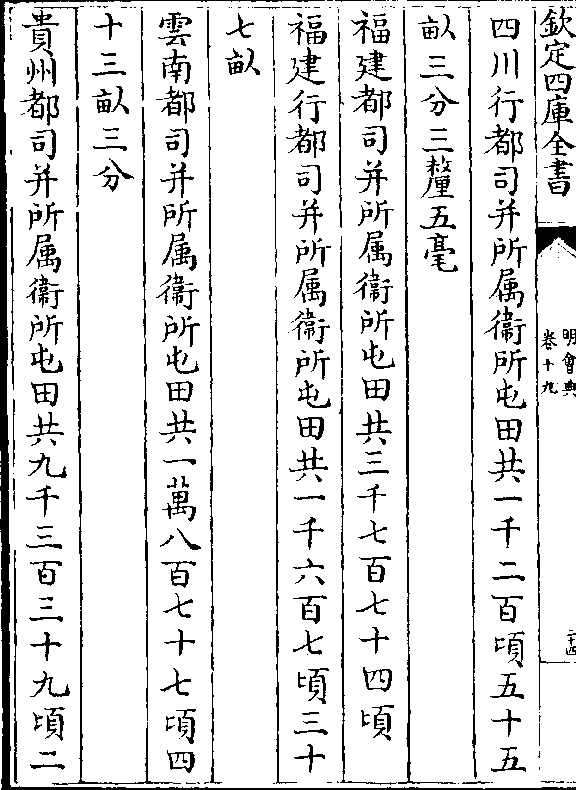 欽定四庫全書
明會典
卷十九
二十四
四川行都司并所属衞所屯田共一千二百頃五十五
畝三分三釐五毫
福建都司并所属衞所屯田共三千七百七十四頃
福建行都司并所属衞所屯田共一千六百七頃三十
七畝
雲南都司并所属衞所屯田共一萬八百七十七頃四
十三畝三分
貴州都司并所属衞所屯田共九千三百三十九頃二